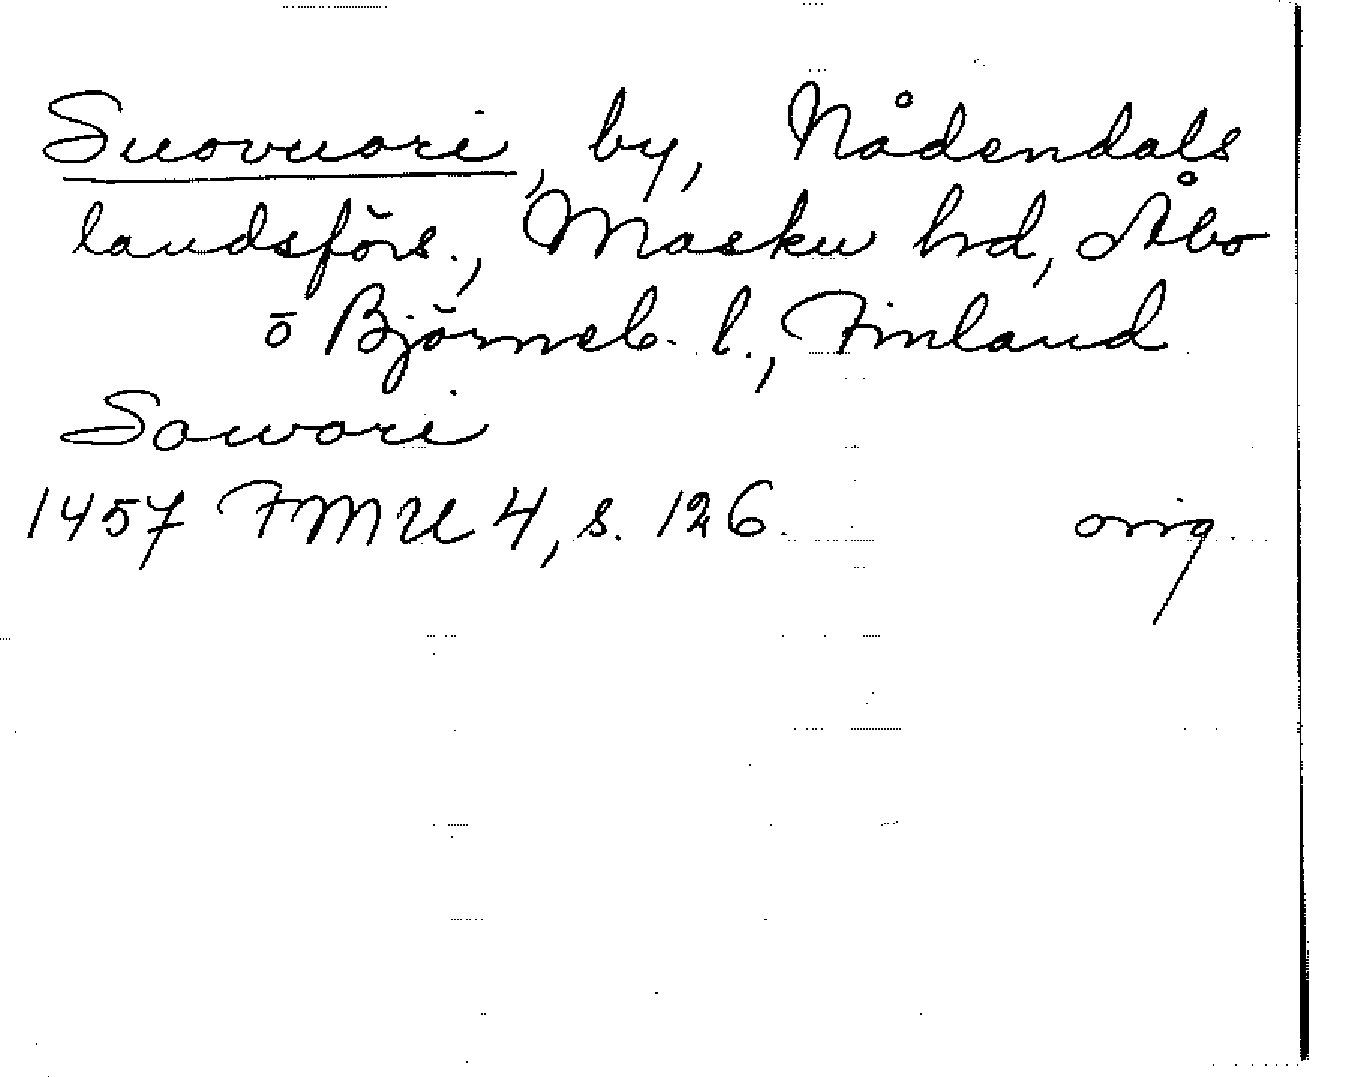 Suovuori, by, Nådendals
landsförs., Masku hd, Åbo
o Björneb. l., Finland
Sowori
1457 FMU 4, s. 126. orig.